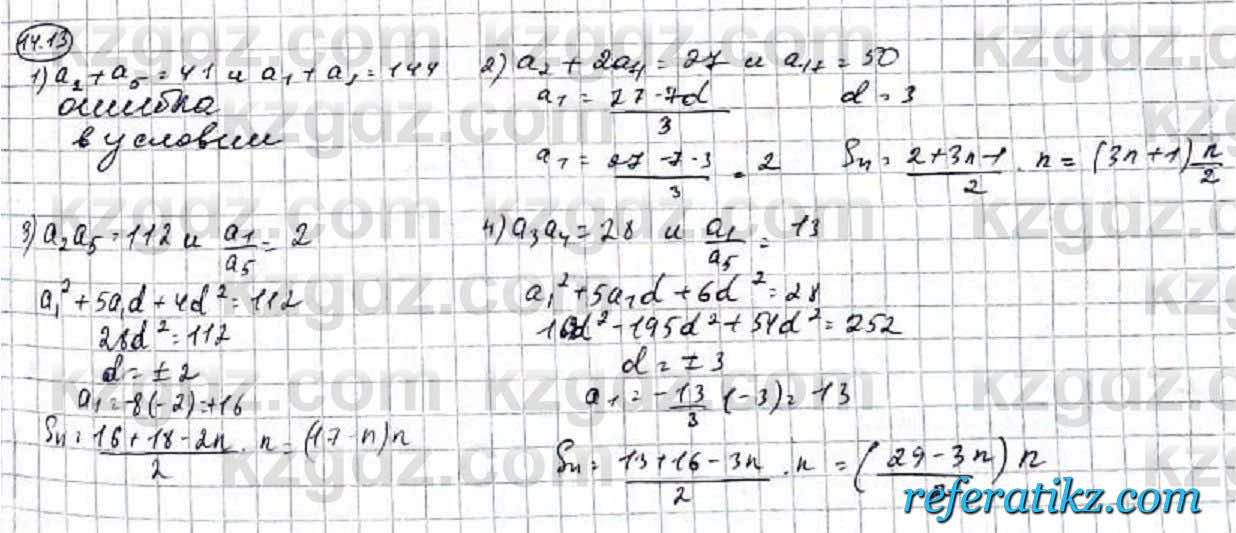 14.13
1) a₂ + a₅ = 41 и a₁ + a₁ = 144
ошибка
в условии
2) a₂ + 2a₄ = 27 и a₁₇ = 50
a₁ = (27 - 7d)/3    d = 3
a₁ = (27 - 7·3)/3 = 2    Sₙ = (2 + 3n - 1)/2 · n = (3n + 1) n/2
3) a₂a₅ = 112 и a₁/a₅ = 2
a₁² + 5a₁d + 4d² = 112
28d² = 112
d = ± 2
a₁ = -8(-2) = +16
Sₙ = (16 + 18 - 2n)/2 · n = (17 - n)n
4) a₃a₄ = 28 и a₁/a₅ = 13
a₁² + 5a₁d + 6d² = 28
169d² - 195d² + 54d² = 252
d = ± 3
a₁ = -13/3 (-3) = 13
Sₙ = (13 + 16 - 3n)/2 · n = ((29 - 3n)/2) n
referatikz.com
kzgdz.com